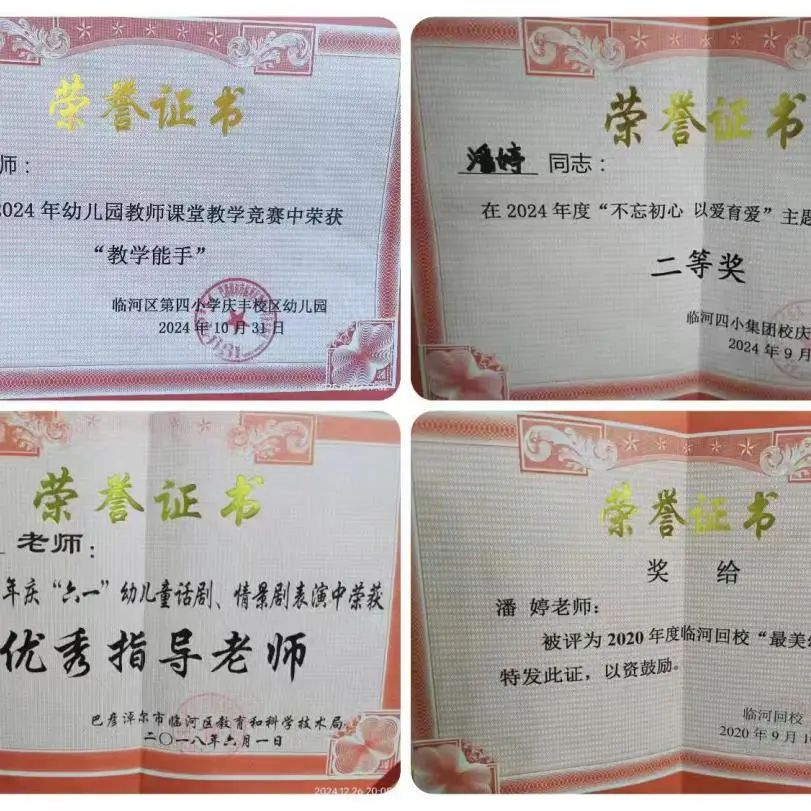 荣誉证书
师：
2024年幼儿园教师课堂教学竞赛中荣获
“教学能手”
临河区第四小学庆丰校区幼儿园
2024年10月31日
荣誉证书
潘婷 同志：
在2024年度“不忘初心 以爱育爱”主题
二等奖
临河四小集团校庆
2024年9月
荣誉证书
老师：
年庆“六一”幼儿童话剧、情景剧表演中荣获
优秀指导老师
巴彦淖尔市临河区教育和科学技术局
二〇一八年六月一日
2024.12.26 20:06
荣誉证书
奖 给
潘 婷老师：
被评为2020年度临河回校“最美
特发此证，以资鼓励。
临河回校
2020年9月1